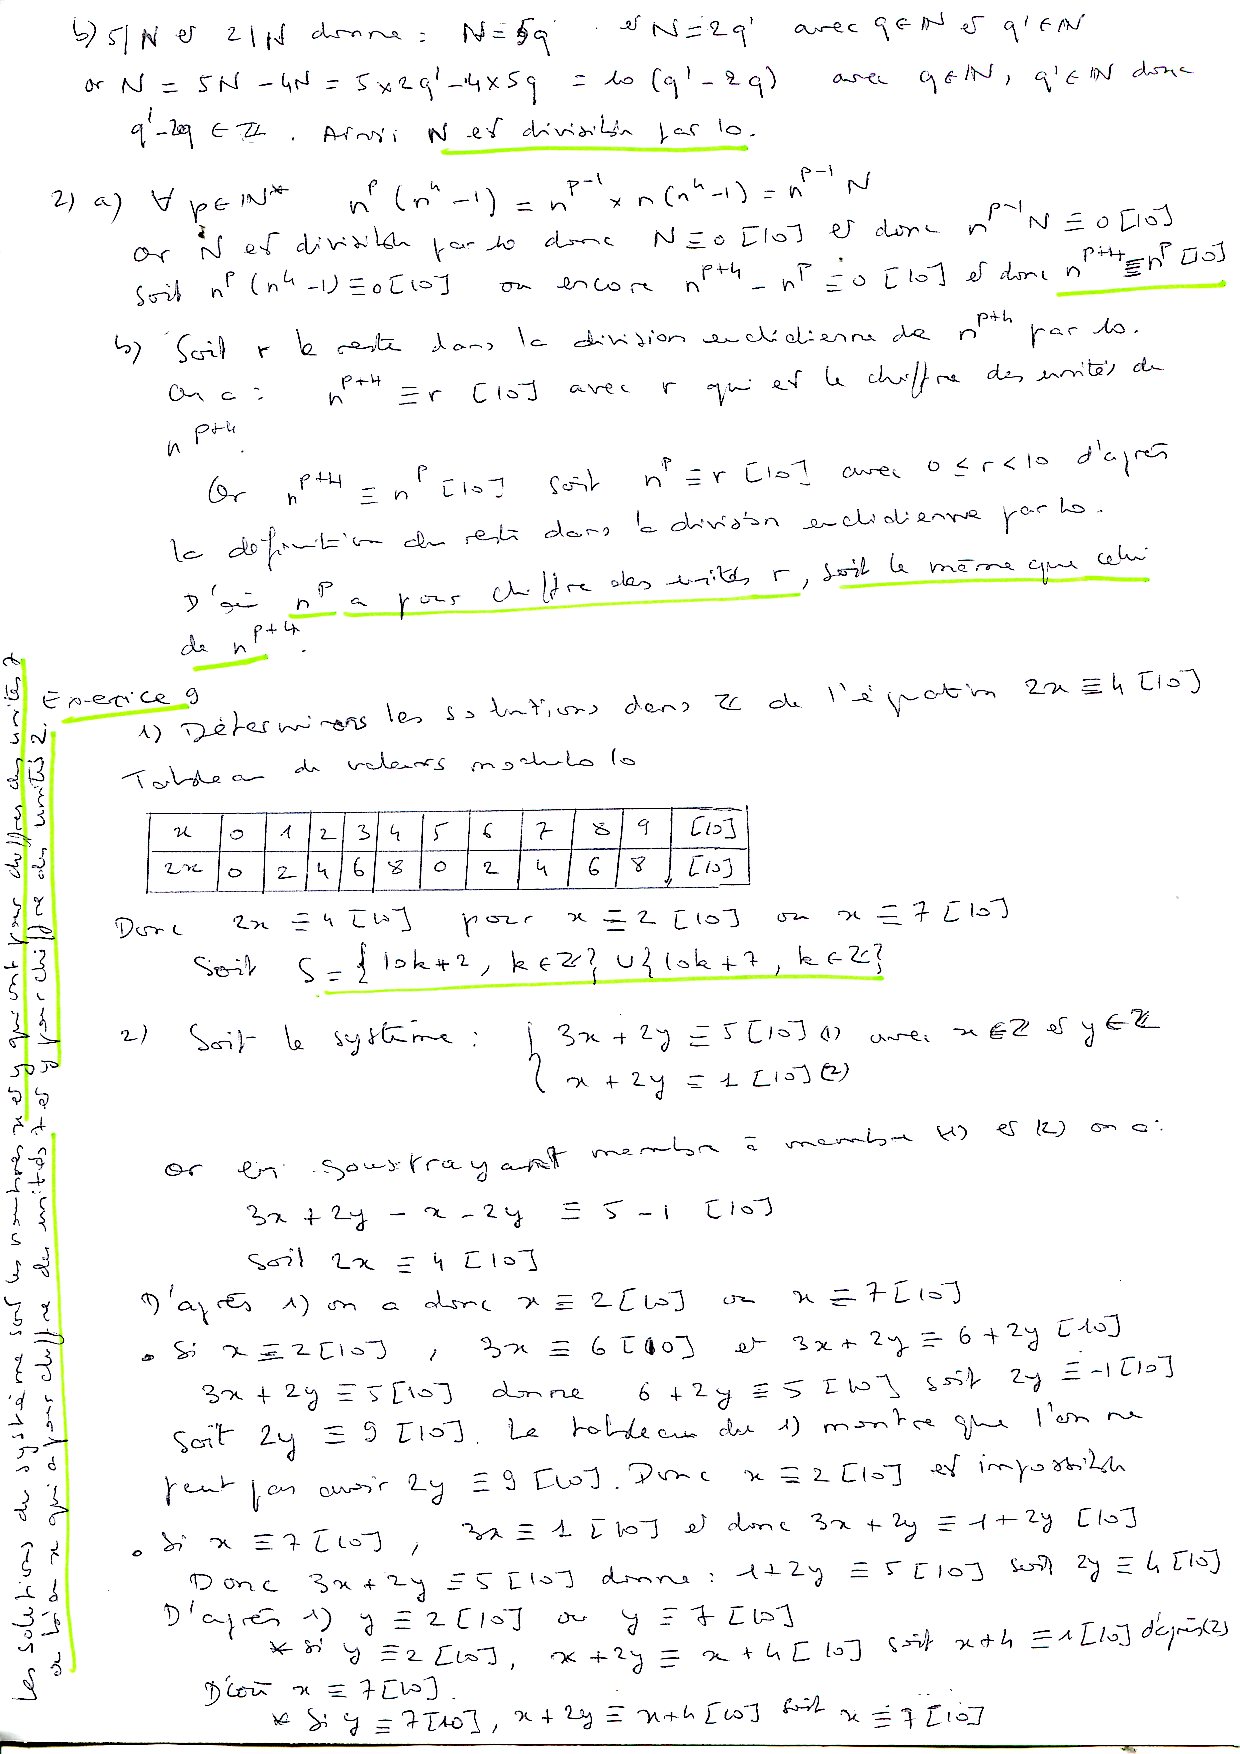 b) 5|N et 2|N donne : N=5q et N=2q' avec q∈ℕ et q'∈ℕ
or N = 5N - 4N = 5×2q' - 4×5q = 10 (q' - 2q) avec q∈ℕ, q'∈ℕ donc
q'-2q ∈ ℤ. Ainsi N est divisible par 10.
2) a) ∀ p∈ℕ* n^p (n^4 - 1) = n^{p-1} × n(n^4 - 1) = n^{p-1} N
or N est divisible par 10 donc N ≡ 0 [10] et donc n^{p-1} N ≡ 0 [10]
soit n^p (n^4 - 1) ≡ 0 [10] ou encore n^{p+4} - n^p ≡ 0 [10] et donc n^{p+4} ≡ n^p [10]
b) Soit r le reste dans la division euclidienne de n^{p+4} par 10.
On a : n^{p+4} ≡ r [10] avec r qui est le chiffre des unités de
n^{p+4}.
Or n^{p+4} ≡ n^p [10] soit n^p ≡ r [10] avec 0 ≤ r < 10 d'après
la définition du reste dans la division euclidienne par 10.
D'où n^p a pour chiffre des unités r, soit le même que celui
de n^{p+4}.
Exercice 9
1) Déterminons les solutions dans ℤ de l'équation 2x ≡ 4 [10]
Tableau de valeurs modulo 10
x 0 1 2 3 4 5 6 7 8 9 [10]
2x 0 2 4 6 8 0 2 4 6 8 [10]
Donc 2x ≡ 4 [10] pour x ≡ 2 [10] ou x ≡ 7 [10]
Soit S = {10k+2, k∈ℤ} ∪ {10k+7, k∈ℤ}
2) Soit le système : { 3x + 2y ≡ 5 [10] (1) avec x∈ℤ et y∈ℤ
x + 2y ≡ 1 [10] (2)
or en soustrayant membre à membre (1) et (2) on a :
3x + 2y - x - 2y ≡ 5 - 1 [10]
soit 2x ≡ 4 [10]
D'après 1) on a donc x ≡ 2 [10] ou x ≡ 7 [10]
• Si x ≡ 2 [10], 3x ≡ 6 [10] et 3x + 2y ≡ 6 + 2y [10]
3x + 2y ≡ 5 [10] donne 6 + 2y ≡ 5 [10] soit 2y ≡ -1 [10]
soit 2y ≡ 9 [10]. Le tableau du 1) montre que l'on ne
peut pas avoir 2y ≡ 9 [10]. Donc x ≡ 2 [10] est impossible
• Si x ≡ 7 [10], 3x ≡ 1 [10] et donc 3x + 2y ≡ 1 + 2y [10]
Donc 3x + 2y ≡ 5 [10] donne : 1 + 2y ≡ 5 [10] soit 2y ≡ 4 [10]
D'après 1) y ≡ 2 [10] ou y ≡ 7 [10]
* Si y ≡ 2 [10], x + 2y ≡ x + 4 [10] soit x + 4 ≡ 1 [10] d'après (2)
D'où x ≡ 7 [10].
* Si y ≡ 7 [10], x + 2y ≡ x + 4 [10] soit x ≡ 7 [10]
Les solutions du système sont les nombres x et y qui ont pour chiffres des unités 7
ou bien x qui a pour chiffre des unités 7 et y pour chiffre des unités 2.